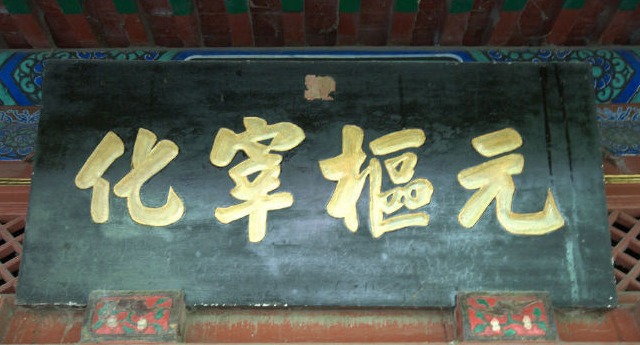 元樞宰化